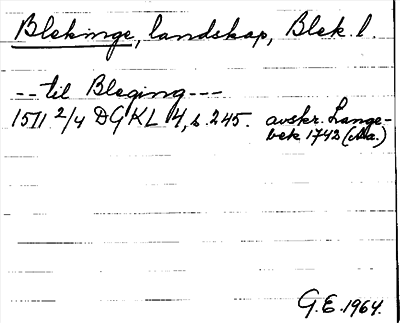 Blekinge, landskap, Blek. l.
-- til Bleging ---
1511 2/4 DGKL 4, s. 245. avskr. Lange-
bek 1742 (Ma.)
G.E. 1964.